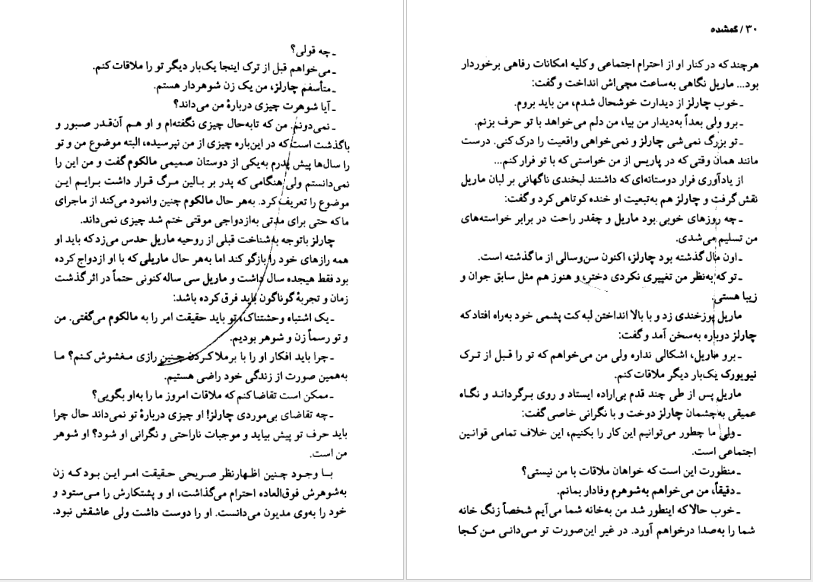 ۳۰ / گمشده
هرچند که در کنار او از احترام اجتماعی و کلیه امکانات رفاهی برخوردار
بود... ماریل نگاهی به‌ساعت مچی‌اش انداخت و گفت:
ـ خوب چارلز از دیدارت خوشحال شدم، من باید بروم.
ـ برو ولی بعداً به‌دیدار من بیا، من دلم می‌خواهد با تو حرف بزنم.
ـ تو بزرگ نمی‌شی چارلز و نمی‌خواهی واقعیت را درک کنی. درست
مانند همان وقتی که در پاریس از من خواستی که با تو فرار کنم...
از یادآوری فرار دوستانه‌ای که داشتند لبخندی ناگهانی بر لبان ماریل
نقش گرفت و چارلز هم به‌تبعیت او خنده کوتاهی کرد و گفت:
ـ چه روزهای خوبی بود ماریل و چقدر راحت در برابر خواسته‌های
من تسلیم می‌شدی.
ـ اون مال گذشته بود چارلز، اکنون سن‌وسالی از ما گذشته است.
ـ تو که به‌نظر من تغییری نکردی دختر، و هنوز هم مثل سابق جوان و
زیبا هستی.
ماریل پوزخندی زد و با بالا انداختن لبه کت پشمی خود به‌راه افتاد که
چارلز دوباره به‌سخن آمد و گفت:
ـ برو ماریل، اشکالی نداره ولی من می‌خواهم که تو را قبل از ترک
نیویورک یک‌بار دیگر ملاقات کنم.
ماریل پس از طی چند قدم بی‌اراده ایستاد و روی برگرداند و نگاه
عمیقی به‌چشمان چارلز دوخت و با نگرانی خاصی گفت:
ـ ولی ما چطور می‌توانیم این کار را بکنیم، این خلاف تمامی قوانین
اجتماعی است.
ـ منظورت این است که خواهان ملاقات با من نیستی؟
ـ دقیقاً، من می‌خواهم به‌شوهرم وفادار بمانم.
ـ خوب حالا که اینطور شد من به‌خانه شما می‌آیم شخصاً زنگ خانه
شما را به‌صدا درخواهم آورد. در غیر این‌صورت تو می‌دانی من کجا
ـ چه قولی؟
ـ می‌خواهم قبل از ترک اینجا یک‌بار دیگر تو را ملاقات کنم.
ـ متأسفم چارلز، من یک زن شوهردار هستم.
ـ آیا شوهرت چیزی دربارهٔ من می‌داند؟
ـ نمی‌دونم. من که تابه‌حال چیزی نگفته‌ام و او هم آن‌قدر صبور و
باگذشت است که در این‌باره چیزی از من نپرسیده، البته موضوع من و تو
را سال‌ها پیش پدرم به‌یکی از دوستان صمیمی مالکوم گفت و من این را
نمی‌دانستم ولی هنگامی که پدر بر بالین مرگ قرار داشت برایم این
موضوع را تعریف کرد. به‌هر حال مالکوم چنین وانمود می‌کند از ماجرای
ما که حتی برای مدتی به‌ازدواجی موقتی ختم شد چیزی نمی‌داند.
چارلز باتوجه به‌شناخت قبلی از روحیه ماریل حدس می‌زد که باید او
همه رازهای خود را بازگو کند اما به‌هر حال ماریلی که با او ازدواج کرده
بود فقط هیجده سال داشت و ماریل سی ساله کنونی حتماً در اثر گذشت
زمان و تجربهٔ گوناگون باید فرق کرده باشد:
ـ یک اشتباه وحشتناک، تو باید حقیقت امر را به مالکوم می‌گفتی. من
و تو رسماً زن و شوهر بودیم.
ـ چرا باید افکار او را با برملا کردن چنین رازی مغشوش کنم؟ ما
به‌همین صورت از زندگی خود راضی هستیم.
ـ ممکن است تقاضا کنم که ملاقات امروز ما را به‌او بگویی؟
ـ چه تقاضای بی‌موردی چارلز! او چیزی دربارهٔ تو نمی‌داند حال چرا
باید حرف تو پیش بیاید و موجبات ناراحتی و نگرانی او شود؟ او شوهر
من است.
با وجود چنین اظهارنظر صریحی حقیقت امر این بود که زن
به‌شوهرش فوق‌العاده احترام می‌گذاشت، او و پشتکارش را می‌ستود و
خود را به‌وی مدیون می‌دانست. او را دوست داشت ولی عاشقش نبود.